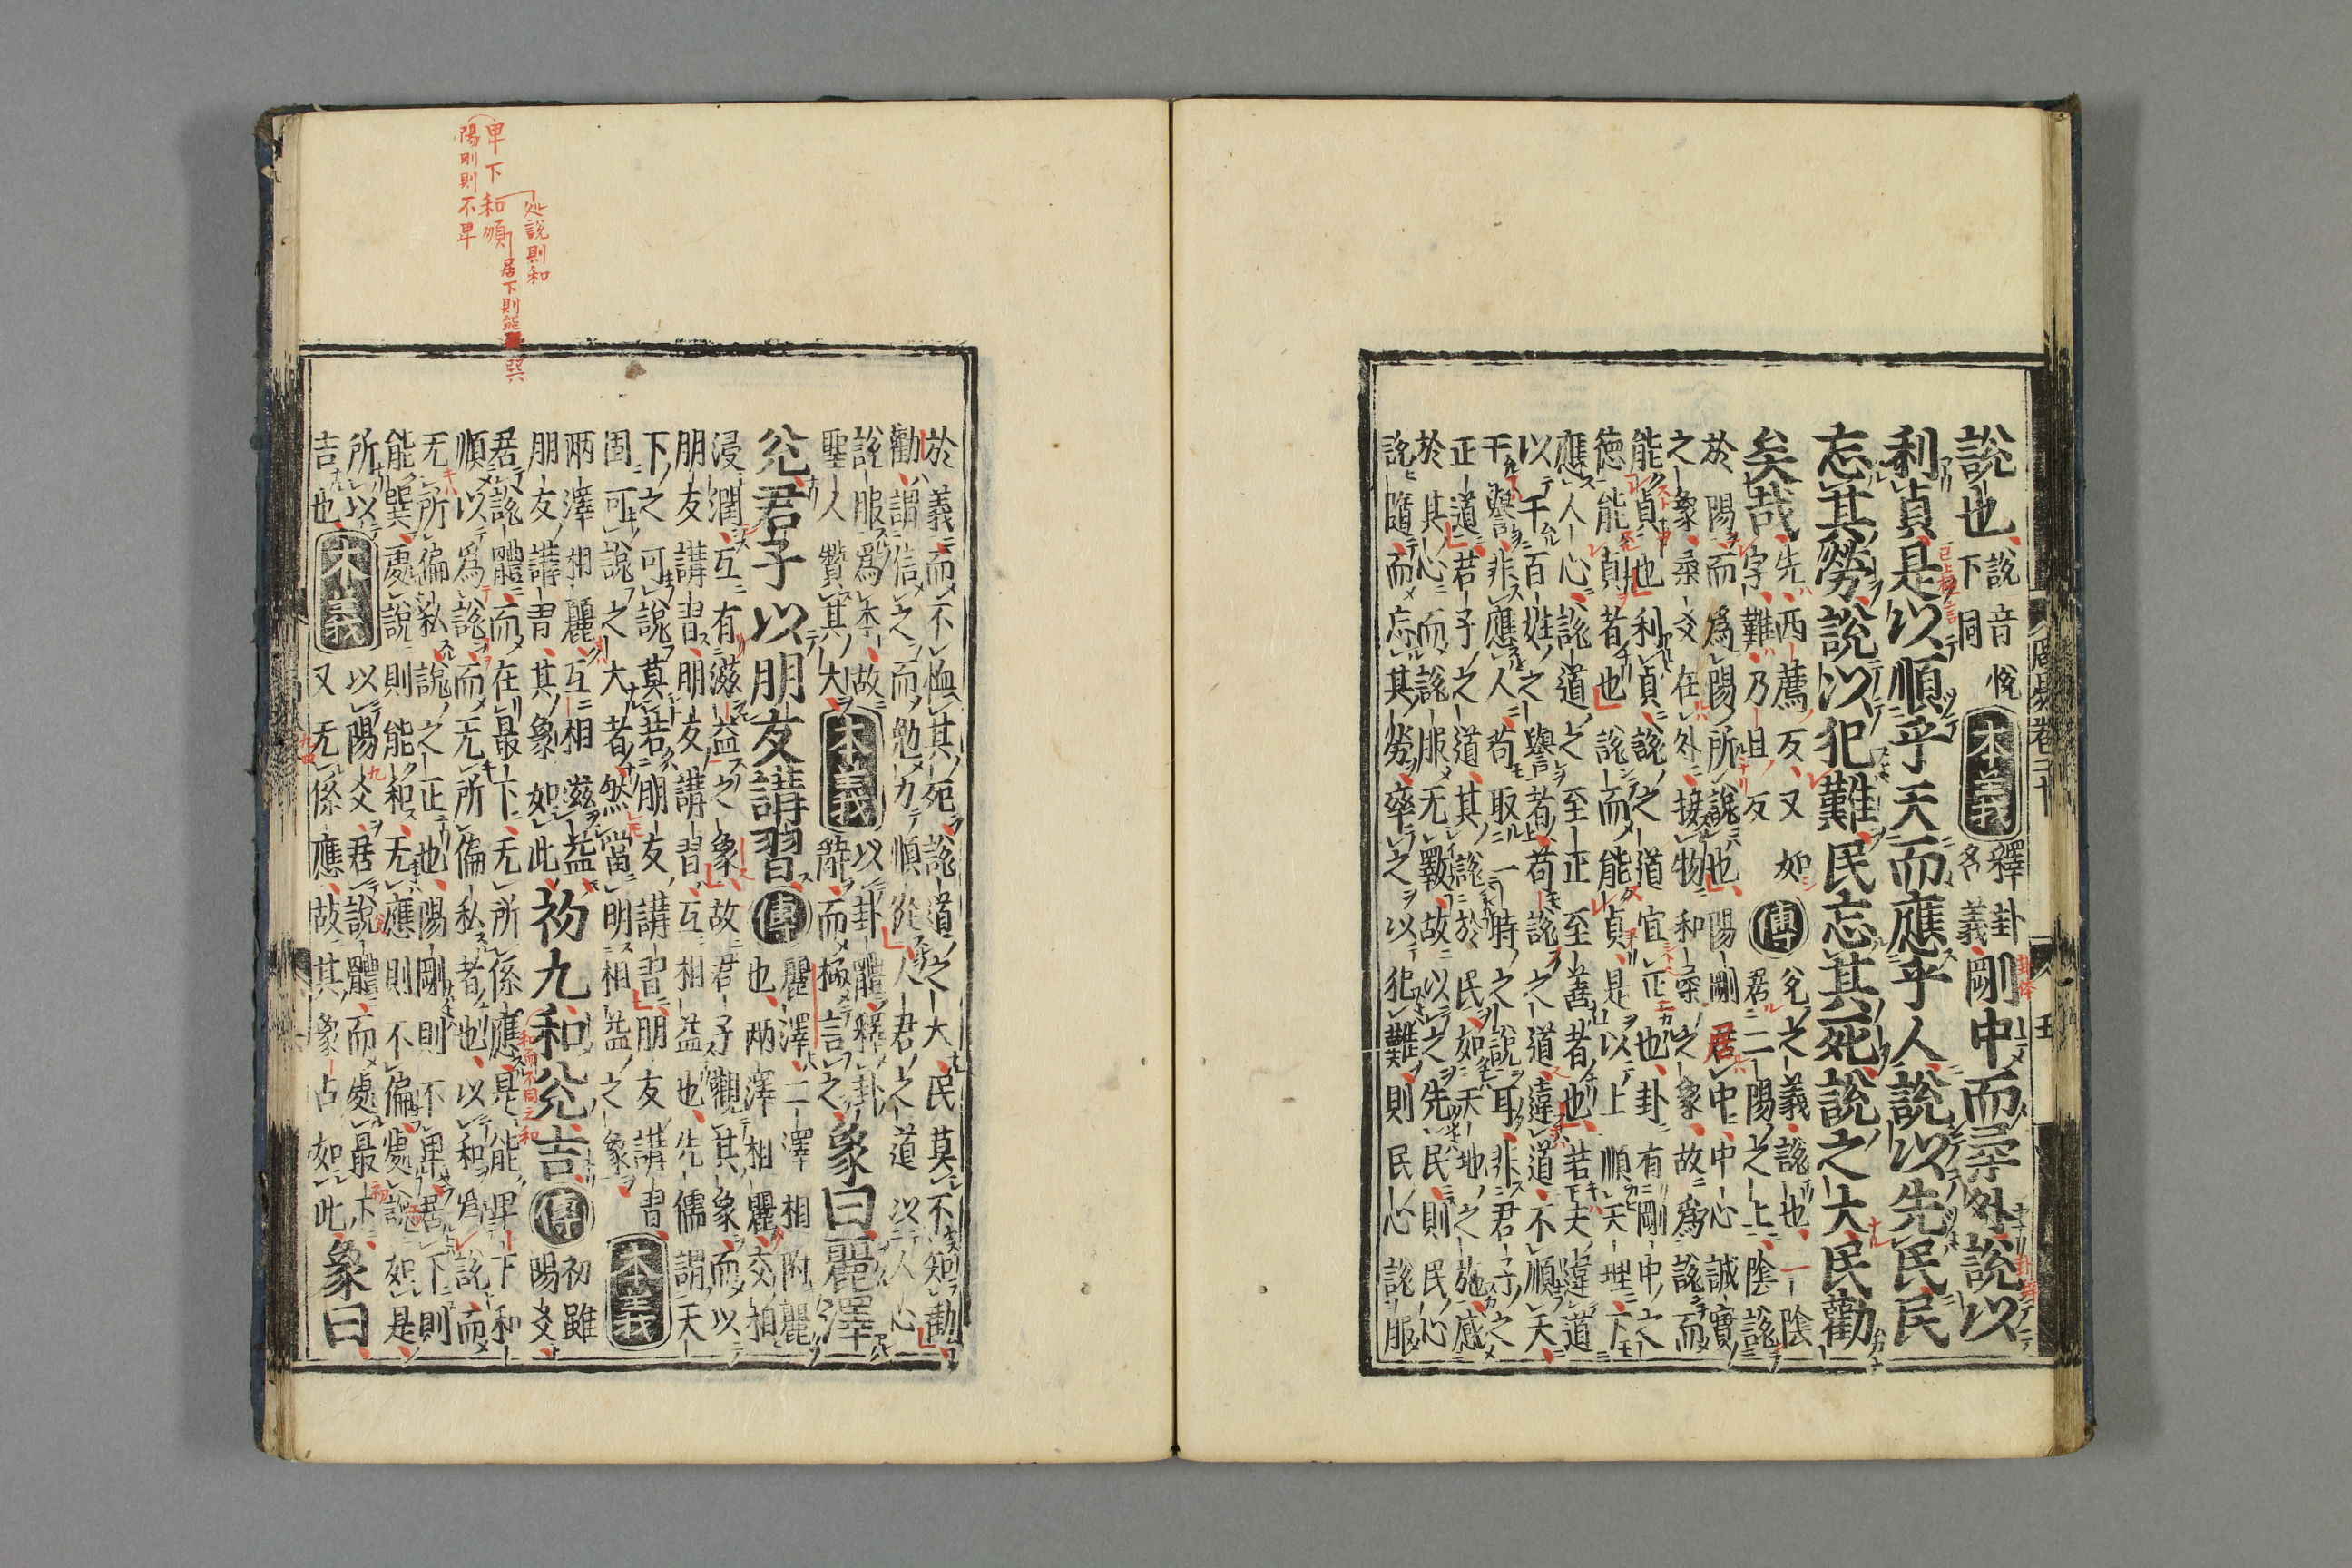 說也說音悅下同本義釋卦名義剛中而柔外說以
利貞是以順乎天而應乎人說以先民民
忘其勞說以犯難民忘其死說之大民勸
矣哉先西薦反又如字難乃旦反傳兌之義說也一陰
君二陽之上陰說
於陽而爲陽所說也陽剛居中中心誠實
之象柔爻在外接物和柔之象故爲說而
能貞也利貞說之道宜正也卦有剛中之
德能貞者也說而能貞是以上順天理下
應人心說道之至正至善者也若夫違道
以干百姓之譽者苟說之道違道不順天
干譽非應人苟取一時之說耳非君子之
正道君子之道其說於民如天地之施感
於其心而說服无斁故以之先民則民心
說隨而忘其勞率之以犯難則民心說服
於義而不恤其死說道之大民莫不知勸
勸謂信之而勉力順從人君之道以人心
說服爲本故聖人贊其大本義以卦體釋卦辭而極言之象曰麗澤
兌君子以朋友講習傳麗澤二澤相附麗也兩澤相麗交相
浸潤互有滋益之象故君子觀其象而以
朋友講習朋友講習互相益也先儒謂天
下之可說莫若朋友講習朋友講習
固可說之大者然當明相益之象本義
兩澤相麗互相滋益朋友講習其象如此初九和兌吉傳初雖陽爻
居說體而在最下无所係應是能卑下和
順以爲說而无所偏私者也以和爲說而
无所偏私說之正也陽剛則不卑居下則
能巽處說則能和无應則不偏處說如是
所以吉也本義以陽爻居說體而處最下又无係應故其象占如此象曰
處說則和
居下則能巽
卑下和順
陽剛則不卑
周易卷二十